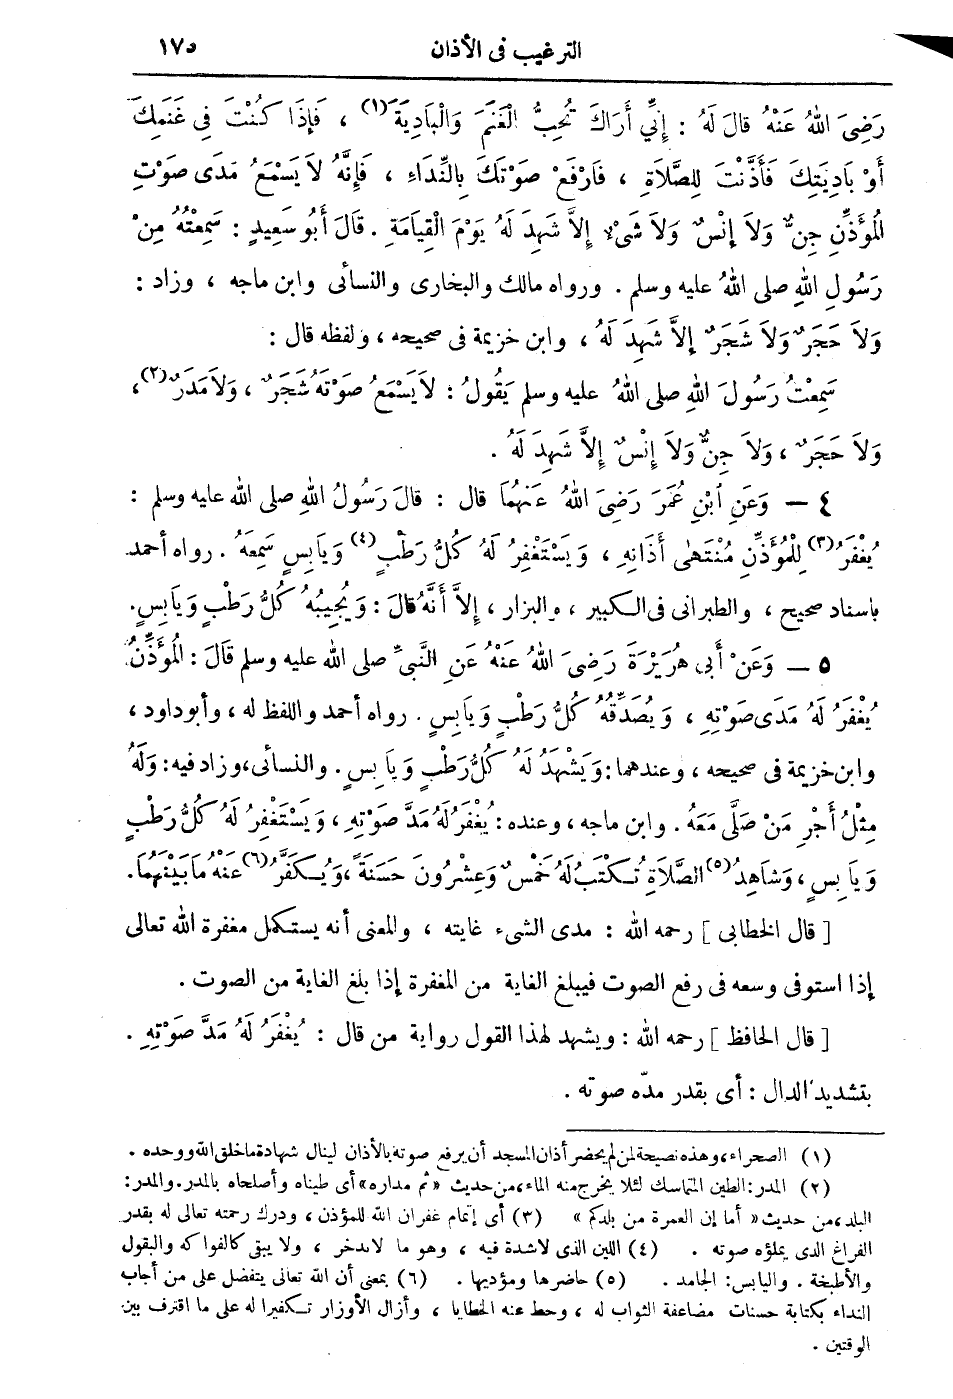 الترغيب فى الأذان ١٧٥
رَضِىَ اللهُ عَنْهُ قَالَ لَهُ : إِنِّي أَرَاكَ تُحِبُّ الْغَنَمَ وَالْبَادِيَةَ (١) ، فَإِذَا كُنْتَ فِى غَنَمِكَ
أَوْ بَادِيَتِكَ فَأَذَّنْتَ لِلصَّلَاةِ ، فَارْفَعْ صَوْتَكَ بِالنِّدَاءِ ، فَإِنَّهُ لَا يَسْمَعُ مَدَى صَوْتِ
الْمُؤَذِّنِ جِنٌّ وَلَا إِنْسٌ وَلَا شَىْءٌ إِلَّا شَهِدَ لَهُ يَوْمَ الْقِيَامَةِ . قَالَ أَبُو سَعِيدٍ : سَمِعْتُهُ مِنْ
رَسُولِ اللهِ صلى اللهُ عليه وسلم . ورواه مالك والبخارى والنسائى وابن ماجه ، وزاد :
وَلَا حَجَرٌ وَلَا شَجَرٌ إِلَّا شَهِدَ لَهُ ، وابن خزيمة فى صحيحه ، ولفظه قال :
سَمِعْتُ رَسُولَ اللهِ صلى اللهُ عليه وسلم يَقُولُ : لَا يَسْمَعُ صَوْتَهُ شَجَرٌ ، وَلَا مَدَرٌ (٢) ،
وَلَا حَجَرٌ ، وَلَا جِنٌّ وَلَا إِنْسٌ إِلَّا شَهِدَ لَهُ .
٤ — وَعَنِ ابْنِ عُمَرَ رَضِىَ اللهُ عَنْهُمَا قال : قَالَ رَسُولُ اللهِ صلى الله عليه وسلم :
يُغْفَرُ (٣) لِلْمُؤَذِّنِ مُنْتَهَى أَذَانِهِ ، وَيَسْتَغْفِرُ لَهُ كُلُّ رَطْبٍ (٤) وَيَابِسٍ سَمِعَهُ . رواه أحمد
باسناد صحيح ، والطبرانى فى الكبير ، والبزار ، إِلَّا أَنَّهُ قَالَ : وَيُجِيبُهُ كُلُّ رَطْبٍ وَيَابِسٍ.
٥ — وَعَنْ أَبِى هُرَيْرَةَ رَضِىَ اللهُ عَنْهُ عَنِ النَّبِىِّ صلى الله عليه وسلم قَالَ : الْمُؤَذِّنُ
يُغْفَرُ لَهُ مَدَى صَوْتِهِ ، وَيُصَدِّقُهُ كُلُّ رَطْبٍ وَيَابِسٍ . رواه أحمد واللفظ له ، وأبو داود ،
وابن خزيمة فى صحيحه ، وعندهما : وَيَشْهَدُ لَهُ كُلُّ رَطْبٍ وَيَابِسٍ . والنسائى ، وزاد فيه : وَلَهُ
مِثْلُ أَجْرِ مَنْ صَلَّى مَعَهُ . وابن ماجه ، وعنده : يُغْفَرُ لَهُ مَدَّ صَوْتِهِ ، وَيَسْتَغْفِرُ لَهُ كُلُّ رَطْبٍ
وَيَابِسٍ ، وَشَاهِدُ (٥) الصَّلَاةِ تُكْتَبُ لَهُ خَمْسٌ وَعِشْرُونَ حَسَنَةً ، وَيُكَفَّرُ (٦) عَنْهُ مَا بَيْنَهُمَا.
[ قال الخطابى ] رحمه الله : مدى الشىء غايته ، والمعنى أنه يستكمل مغفرة الله تعالى
إذا استوفى وسعه فى رفع الصوت فيبلغ الغاية من المغفرة إذا بلغ الغاية من الصوت .
[ قال الحافظ ] رحمه الله : ويشهد لهذا القول رواية من قال : يُغْفَرُ لَهُ مَدَّ صَوْتِهِ .
بتشديد الدال : أى بقدر مدّه صوته .
(١) الصحراء ، وهذه نصيحة لمن لم يحضر أذان المسجد أن يرفع صوته بالأذان لينال شهادة ما خلق الله ووحده .
(٢) المدر : الطين المتماسك لئلا يخرج منه الماء ، من حديث « ثم مداره » أى طيناه وأصلحاه بالمدر. والمدر :
البلد ، من حديث « أما إن العمرة من بلدكم » (٣) أى إتمام غفران الله للمؤذن ، ودرك رحمته تعالى له بقدر
الفراغ الذى يملؤه صوته . (٤) اللين الذى لا شدة فيه ، وهو ما لا يدخر ، ولا يبقى كالفواكه والبقول
والأطبخة . واليابس : الجامد . (٥) حاضرها ومؤديها . (٦) بمعنى أن الله تعالى يتفضل على من أجاب
النداء بكتابة حسنات مضاعفة الثواب له ، وحط عنه الخطايا ، وأزال الأوزار تكفيرا له على ما اقترف بين
الوقتين .